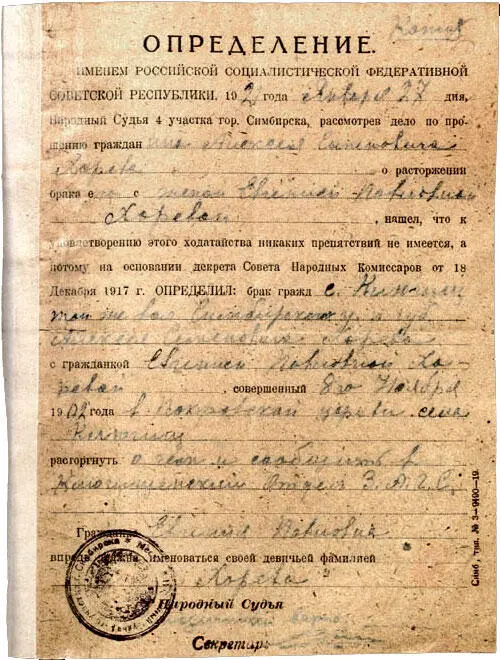 Копия
ОПРЕДЕЛЕНИЕ.
ИМЕНЕМ РОССИЙСКОЙ СОЦИАЛИСТИЧЕСКОЙ ФЕДЕРАТИВНОЙ
СОВЕТСКОЙ РЕСПУБЛИКИ, 1921 года января 27 дня,
Народный Судья 4 участка гор. Симбирска, рассмотрев дело по про-
шению гражданина Алексея
Хорева о расторжении
брака его с женой Евгенией Павловной
Хоревой, нашел, что к
удовлетворению этого ходатайства никаких препятствий не имеется, а
потому на основании декрета Совета Народных Комиссаров от 18
Декабря 1917 г. ОПРЕДЕЛИЛ: брак гражд с.
той же вол. Симбирского у. и губ
Алексея Хорева
с гражданкой Евгенией Павловной Хо-
ревой, совершенный 8го Ноября
1902 года в церкви села
расторгнуть о чем и сообщить в
Отдел З.А.Г.С.
Гражданка Евгения Павловна
впредь должна именоваться своей девичьей фамилией
"Хорева"
Народный Судья
Секретарь
Симб. тип. № 3—9190—19.